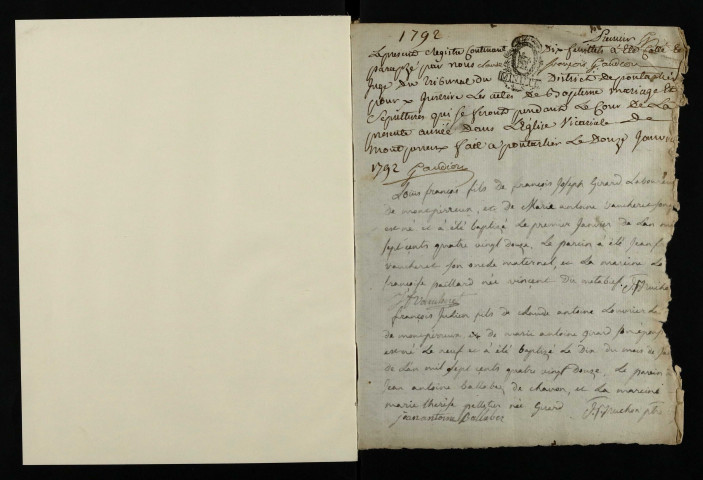 1792
Premier
Le present Registre Contenant Dix feuillets a Eté Cotté et
paraphé par nous Claude françois Gaudion
Juge du Tribunal du District de pontarlier
pour y Inscrire Les actes de Bapteme mariage Et
Sepultures qui se feront pendant Le Cour de La
presente année Dans L'Eglise Vicariale de
montperreux fait a pontarlier Le Douze Janvier
1792 Gaudion
Louis françois fils de françois Joseph Girard Laboureur
de montperreux, et de Marie antoine vaucheret
est né et à été baptizé Le premier Janvier de L'an mil
Sept cents quatre vingt douze, Le parein à été Jean
vaucheret Son oncle maternel, et La mareine
françoise paillard née vincent De metabief.
françois fils de claude antoine
de montperreux & de marie antoine girard
est né Le neuf et à été baptizé Le Dix du mois de
de L'an mil Sept cents quatre vingt douze, Le parein
Jean antoine Ballabez de chaon, et La mareine
marie therese pelletier née Girard
jean antoine Ballabez